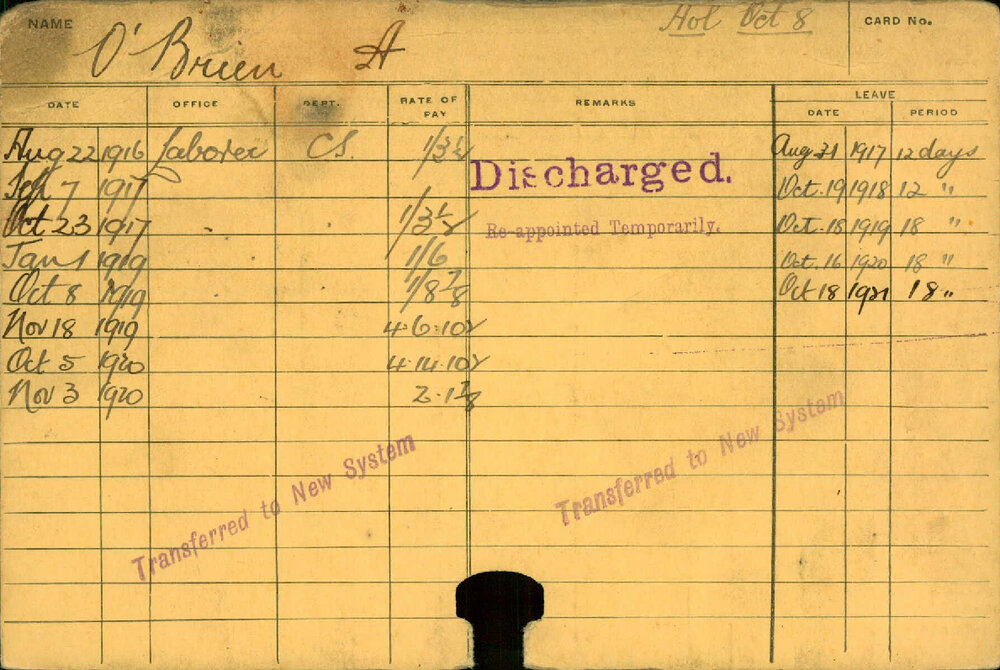 NAME O'Brien A Hol Oct 8 CARD No.
DATE OFFICE DEPT. RATE OF PAY REMARKS LEAVE
DATE PERIOD
Aug 22 1916 Laborer CS. 1/3½ Aug 31 1917 12 days
Sept 7 1917 Discharged. Oct. 19 1918 12 "
Oct 23 1917 " " 1/3½ Re-appointed Temporarily. Oct. 18 1919 18 "
Jan 1 1919 1/6 Oct. 16 1920 18 "
Oct 8 1919 1/8⅞ Oct 18 1921 18 "
Nov 18 1919 4.6.10½
Oct 5 1920 4.14.10½
Nov 3 1920 2.1⅞
Transferred to New System
Transferred to New System